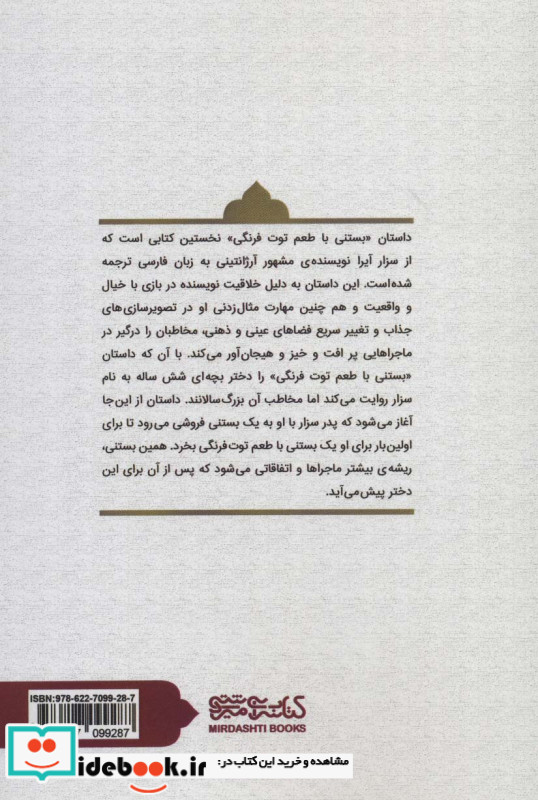 داستان «بستنی با طعم توت فرنگی» نخستین کتابی است که
از سزار آیرا نویسنده‌ی مشهور آرژانتینی به زبان فارسی ترجمه
شده‌است. این داستان به دلیل خلاقیت نویسنده در بازی با خیال
و واقعیت و هم چنین مهارت مثال‌زدنی او در تصویرسازی‌های
جذاب و تغییر سریع فضاهای عینی و ذهنی، مخاطبان را درگیر در
ماجراهایی پر افت و خیز و هیجان‌آور می‌کند. با آن که داستان
«بستنی با طعم توت فرنگی» را دختر بچه‌ای شش ساله به نام
سزار روایت می‌کند اما مخاطب آن بزرگ‌سالانند. داستان از این‌جا
آغاز می‌شود که پدر سزار با او به یک بستنی فروشی می‌رود تا برای
اولین‌بار برای او یک بستنی با طعم توت‌فرنگی بخرد. همین بستنی،
ریشه‌ی بیشتر ماجراها و اتفاقاتی می‌شود که پس از آن برای این
دختر پیش‌می‌آید.
ISBN: 978-622-7099-28-7
099287
کتابسرای میردشتی
MIRDASHTI BOOKS
مشاهده و خرید این کتاب در:
idebook.ir